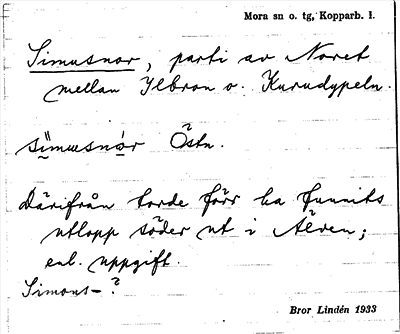 Mora sn o. tg, Kopparb. l.
Simusnor, parti av Noret
mellan Ylbron o. Kurudypeln.
sïmusnǫr Östn.
Därifrån torde förr ha funnits
utlopp söder ut i Älven;
enl. uppgift.
Simons- ?
Bror Lindén 1933